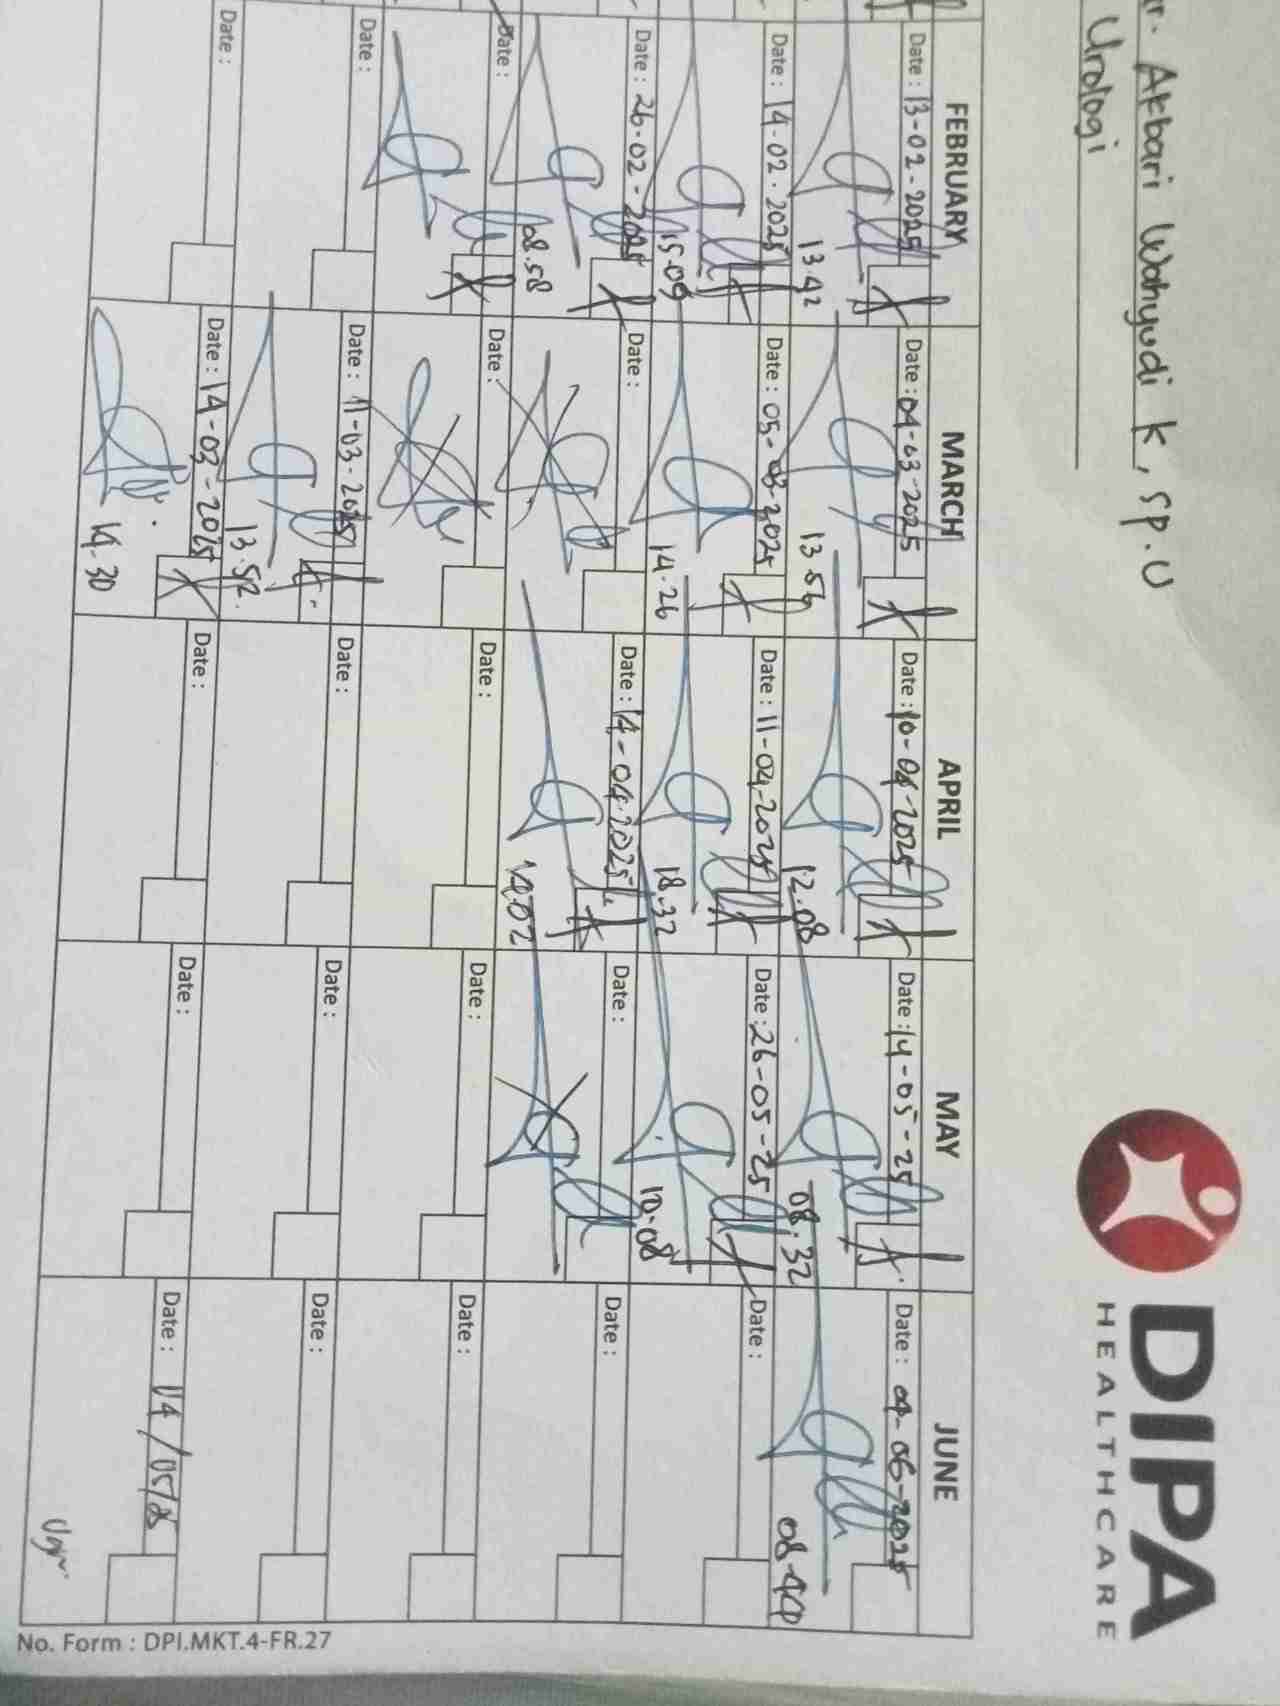 DIPA
HEALTHCARE
r. Akbari Wahyudi K, Sp.U
Urologi
FEBRUARY MARCH APRIL MAY JUNE
Date : 13-02-2025 Date : 04-03-2025 Date : 10-04-2025 Date : 14-05-25 Date : 04-06-2025
13.42 13.56 12.08 08.32 08.44
Date : 14.02.2025 Date : 05-03-2025 Date : 11-04-2025 Date : 26-05-25 Date :
15.09 14.26 18.32 10.08
Date : 26-02-2025 Date : Date : 14-04-2025 Date : Date :
08.58 14.02
Date : Date : Date : Date : Date :
Date : Date : 11-03-2025 Date : Date : Date :
13.52
Date : Date : 14-03-2025 Date : Date : Date : 14/05/25
14.30
No. Form : DPI.MKT.4-FR.27